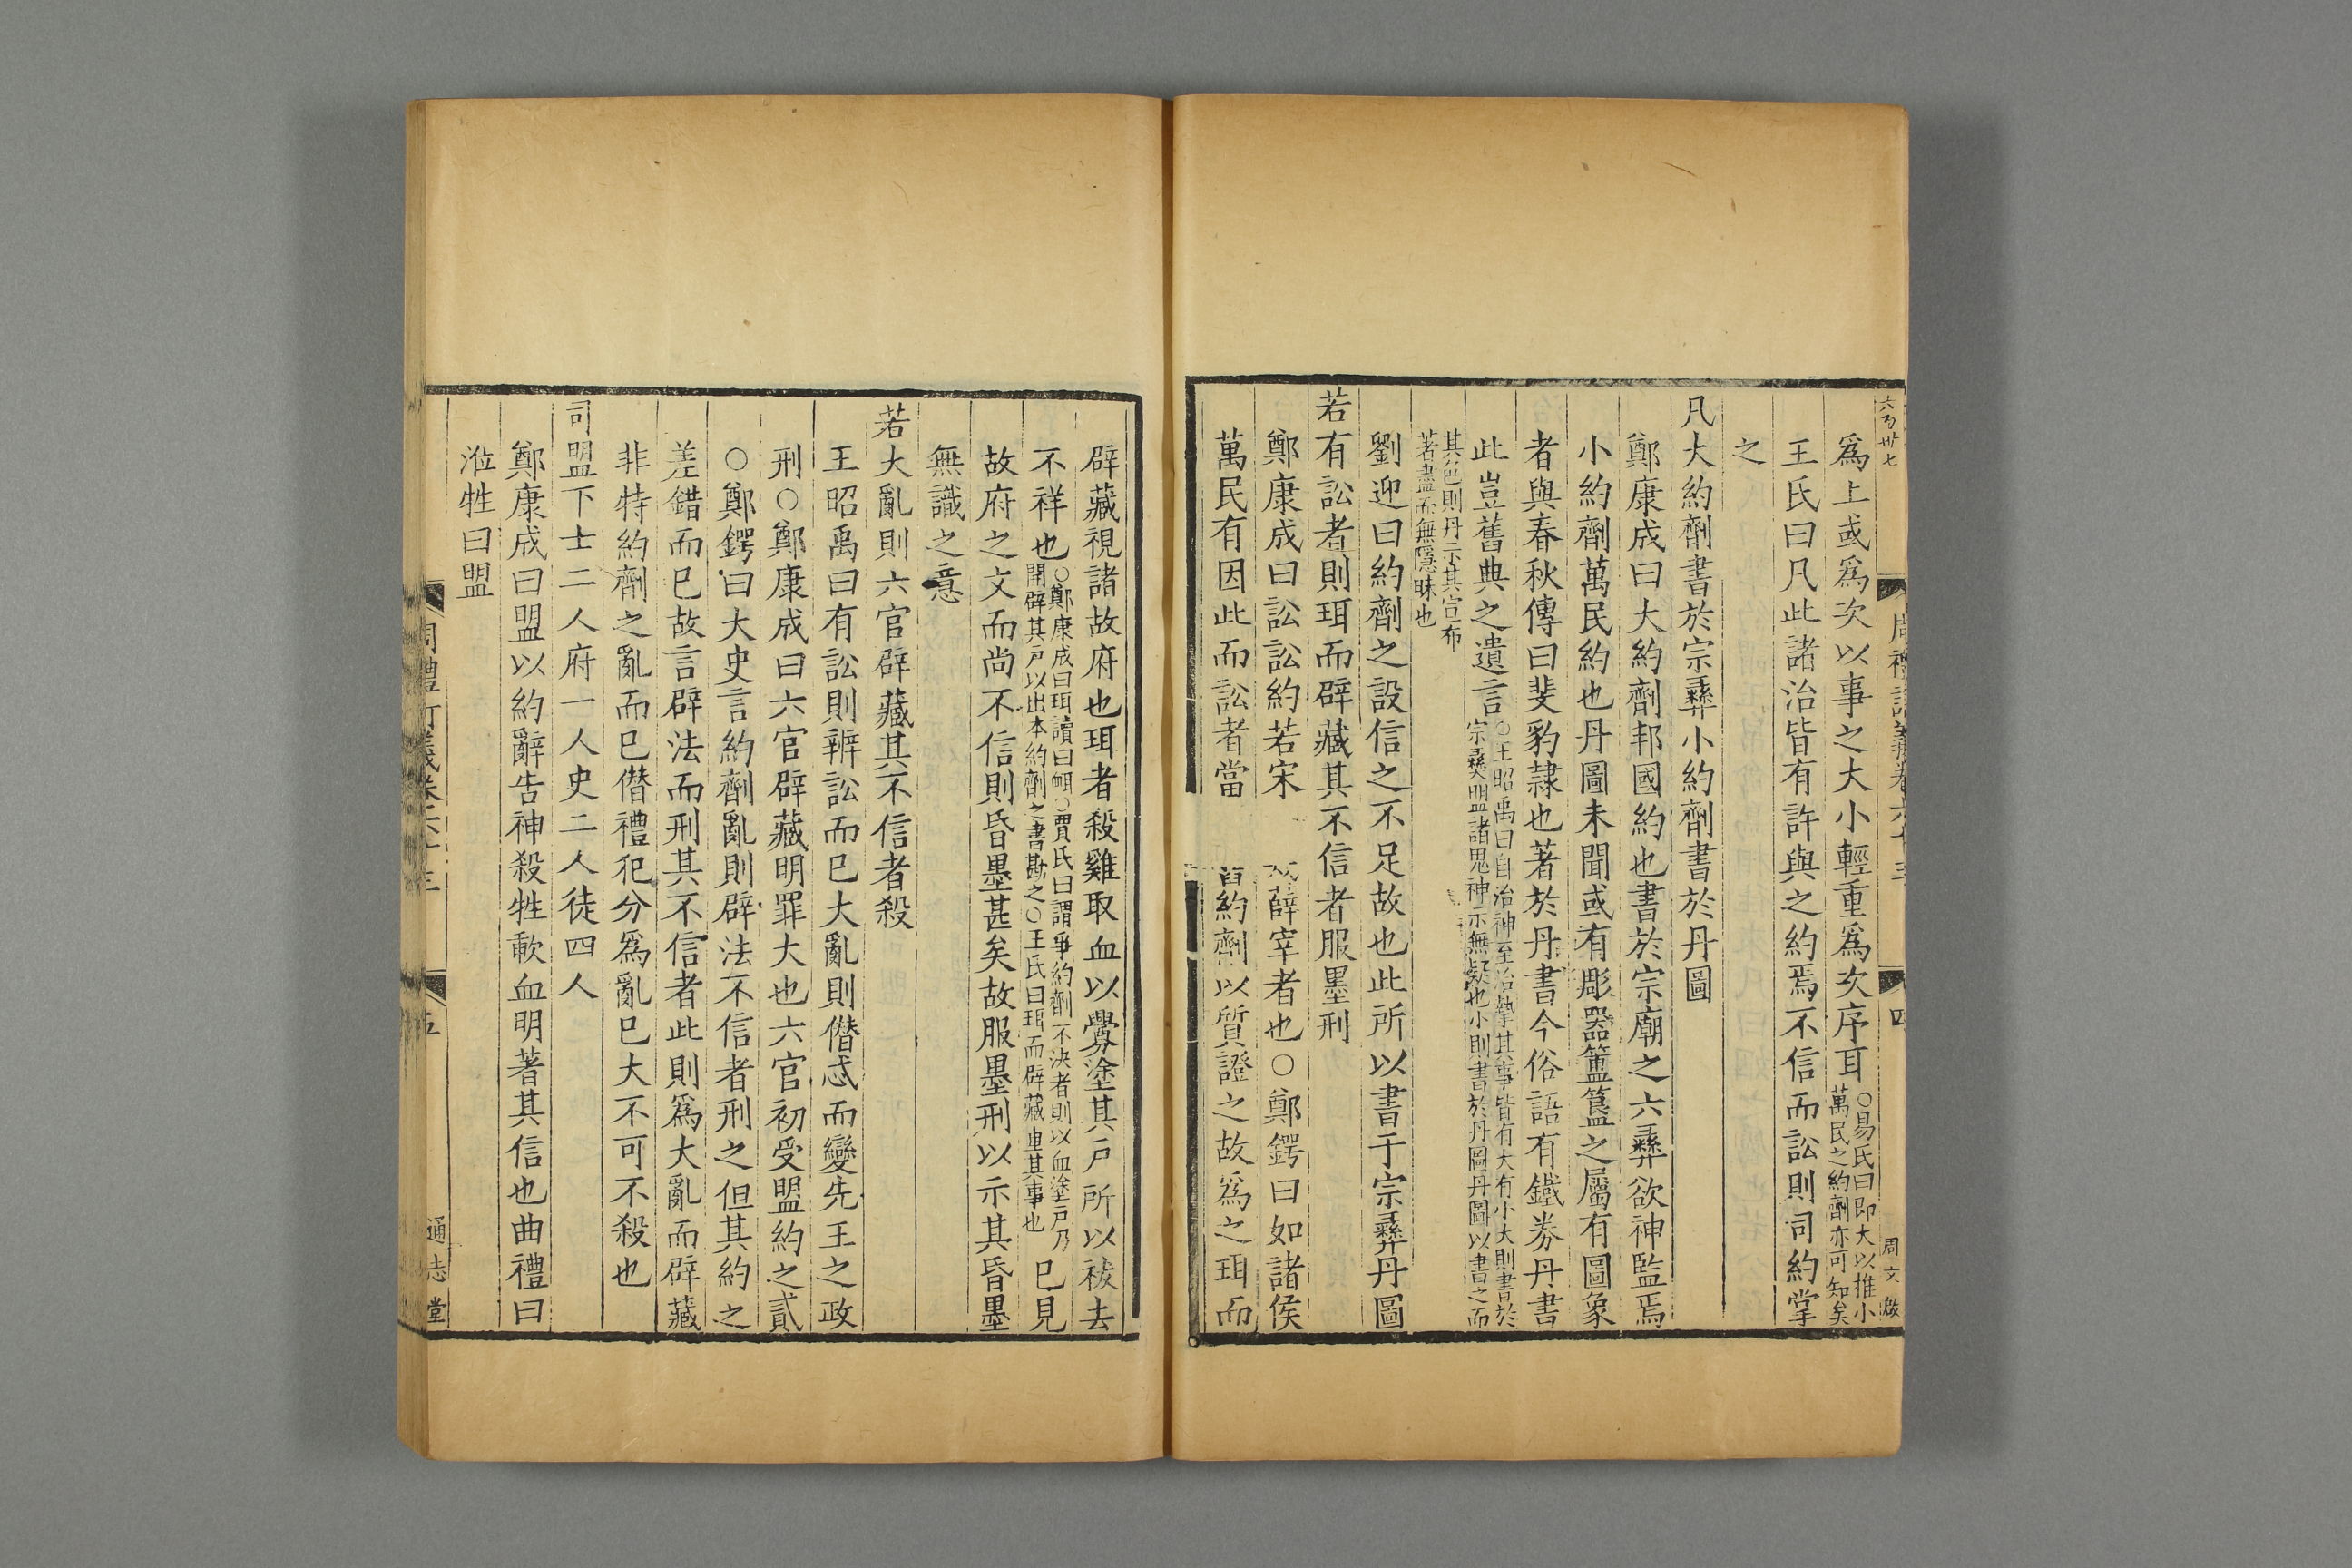 爲上或爲次以事之大小輕重爲次序耳○易氏曰即大以推小萬民之約劑亦可知矣
王氏曰凡此諸治皆有許與之約焉不信而訟則司約掌
之
凡大約劑書於宗彝小約劑書於丹圖
鄭康成曰大約劑邦國約也書於宗廟之六彝欲神監焉
小約劑萬民約也丹圖未聞或有彫器簠簋之屬有圖象
者與春秋傳曰斐豹隷也著於丹書今俗語有鐵券丹書
此豈舊典之遺言○王昭禹曰自治神至治摯其事皆有大有小大則書於宗彝明諸鬼神示無疑也小則書於丹圖丹圖以書之而
其色則丹示其宣布著盡而無隱昧也
劉迎曰約劑之設信之不足故也此所以書于宗彝丹圖
若有訟者則珥而辟藏其不信者服墨刑
鄭康成曰訟訟約若宋 薛宰者也○鄭鍔曰如諸侯
萬民有因此而訟者當 約劑以質證之故爲之珥而
周文啟
辟藏視諸故府也珥者殺雞取血以釁塗其戸所以祓去
不祥也○鄭康成曰珥讀曰衈○賈氏曰謂爭約劑不決者則以血塗戸乃開辟其戸以出本約劑之書勘之○王氏曰珥而辟藏重其事也已見
故府之文而尚不信則昏墨甚矣故服墨刑以示其昏墨
無識之意
若大亂則六官辟藏其不信者殺
王昭禹曰有訟則辨訟而已大亂則僭忒而變先王之政
刑○鄭康成曰六官辟藏明罪大也六官初受盟約之貳
○鄭鍔曰大史言約劑亂則辟法不信者刑之但其約之
差錯而已故言辟法而刑其不信者此則爲大亂而辟藏
非特約劑之亂而已僭禮犯分爲亂已大不可不殺也
司盟下士二人府一人史二人徒四人
鄭康成曰盟以約辭告神殺牲歃血明著其信也曲禮曰
涖牲曰盟
通志堂